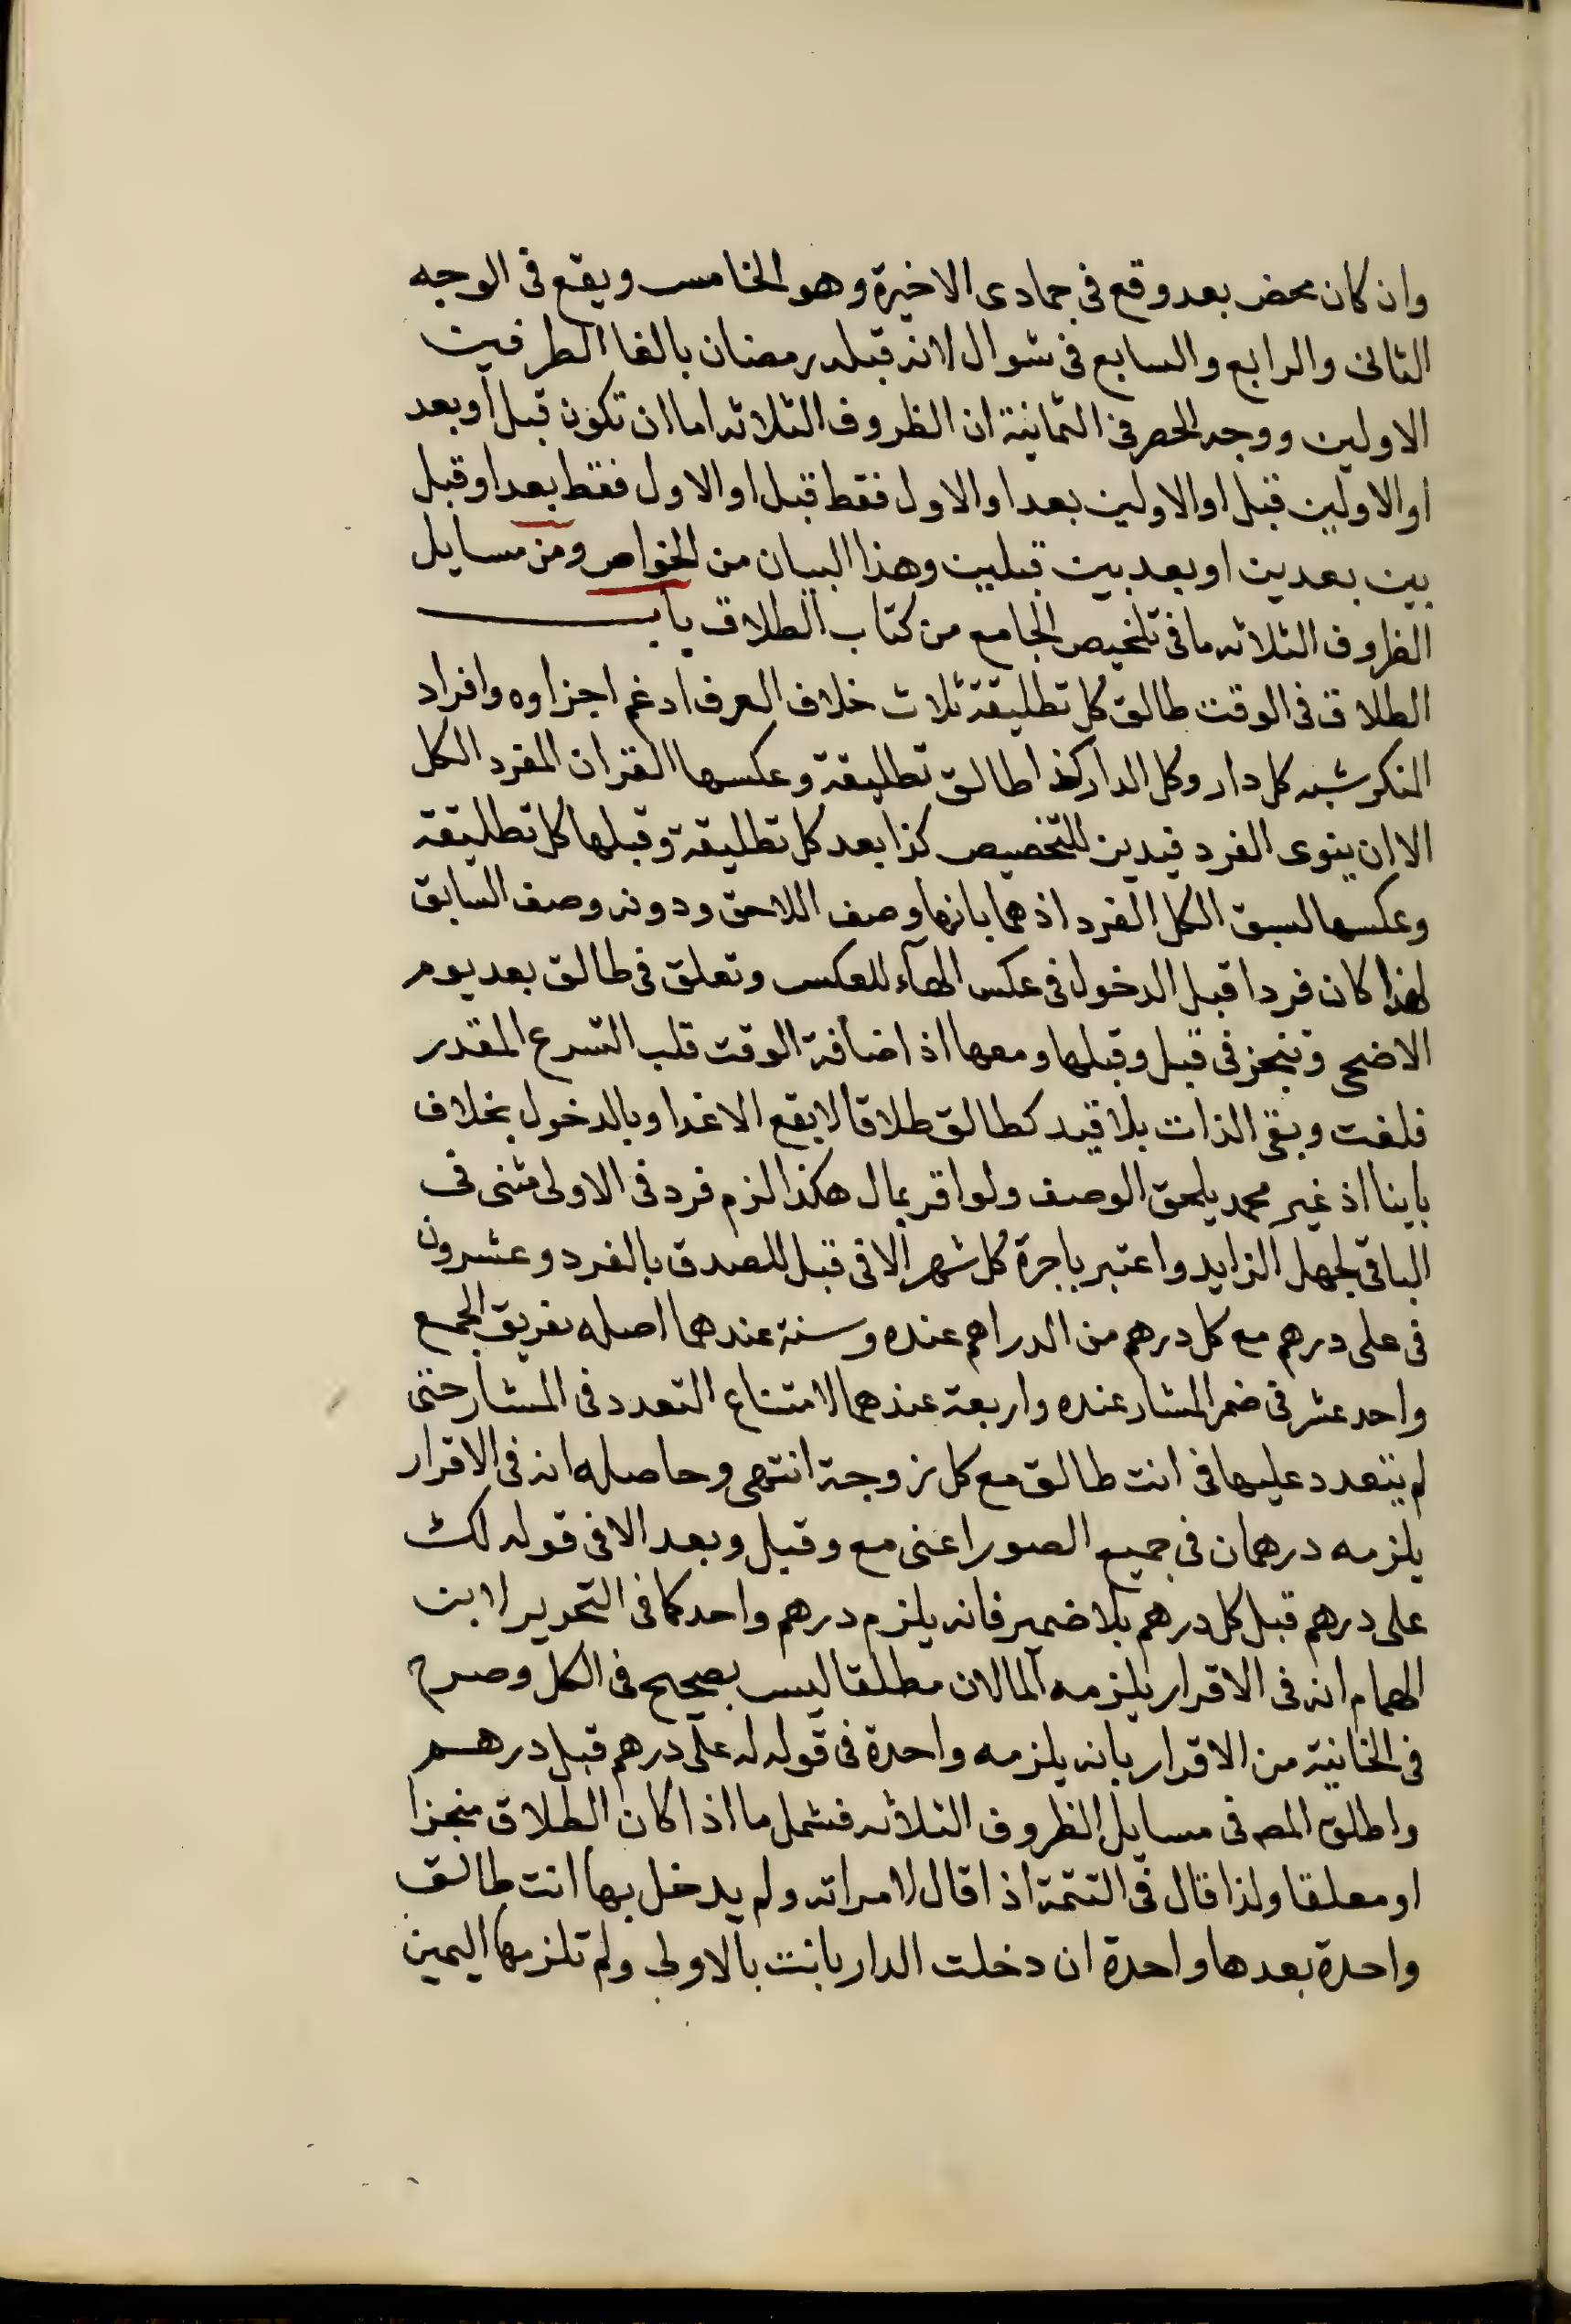 وان كان محض بعد وقع فى جمادى الاخيرة وهو الخامس ويقع فى الوجه
الثانى والرابع والسابع فى شوال لانه قبله رمضان بالغا الطرفين
الاولين ووجه الحصر فى الثمانية ان الظروف الثلاثه اما ان تكون قبل او بعد
او الاولين قبل او الاولين بعد او الاول فقط قبل او الاول فقط بعد او قبل
بين بعدين او بعد بين قبلين وهذا البيان من الخواص ومن مسايل
الظروف الثلاثه ما فى تلخيص الجامع من كتاب الطلاق باب
الطلاق فى الوقت طالق كل تطليقة ثلاث خلاف العرف اد عم اجزاوه وافراد
المنكر شبه كل دار وكل الدار كذا طالق تطليقة وعكسها القران المفرد الكل
الا ان ينوى الفرد فيدين للتخصيص كذا بعد كل تطليقة وقبلها كل تطليقة
وعكسها لسبق الكل الفرد اذ هما بانها وصف اللاحق ودونه وصف السابق
لهذا كان فردا قبل الدخول فى عكس الهآء للعكس وتعلق فى طالق بعد يوم
الاضحى وتنجز فى قبل وقبلها ومعها اذ اضافة الوقت قلب الشرع المقدر
فلغت وبقى الذات بلا قيد كطالق طلاقا لا يقع الا غدا وبالدخول بخلاف
باينا اذ غير محمد يلحق الوصف ولو اقر بمال هكذا لزم فرد فى الاولى مثنى فى
الباقى لجهل الزايد واعتبر باجرة كل شهر الا فى قبل للصدق بالفرد وعشرون
فى على درهم مع كل درهم من الدراهم عنده وستة عندهما اصله تفريق الجمع
واحد عشر فى ضم المشار عنده واربعة عندهما لامتناع التعدد فى المشار حتى
لم يتعدد عليها فى انت طالق مع كل زوجة انتهى وحاصله انه فى الاقرار
يلزمه درهمان فى جميع الصور اعنى مع وقبل وبعد الا فى قوله لك
على درهم قبل كل درهم بلا ضمير فانه يلزم درهم واحد كما فى التحرير لابن
الهمام انه فى الاقرار يلزمه المالان مطلقا ليس بصحيح فى الكل وصرح
فى الخانية من الاقرار بانه يلزمه واحدة فى قوله له على درهم قبل درهم
واطلق المص فى مسايل الظروف الثلاثه فشمل ما اذا كان الطلاق منجزا
او معلقا ولذا قال فى التتمة اذا قال لامراته ولم يدخل بها انت طالق
واحدة بعدها واحدة ان دخلت الدار بانت بالاولى ولم تلزمها اليمين